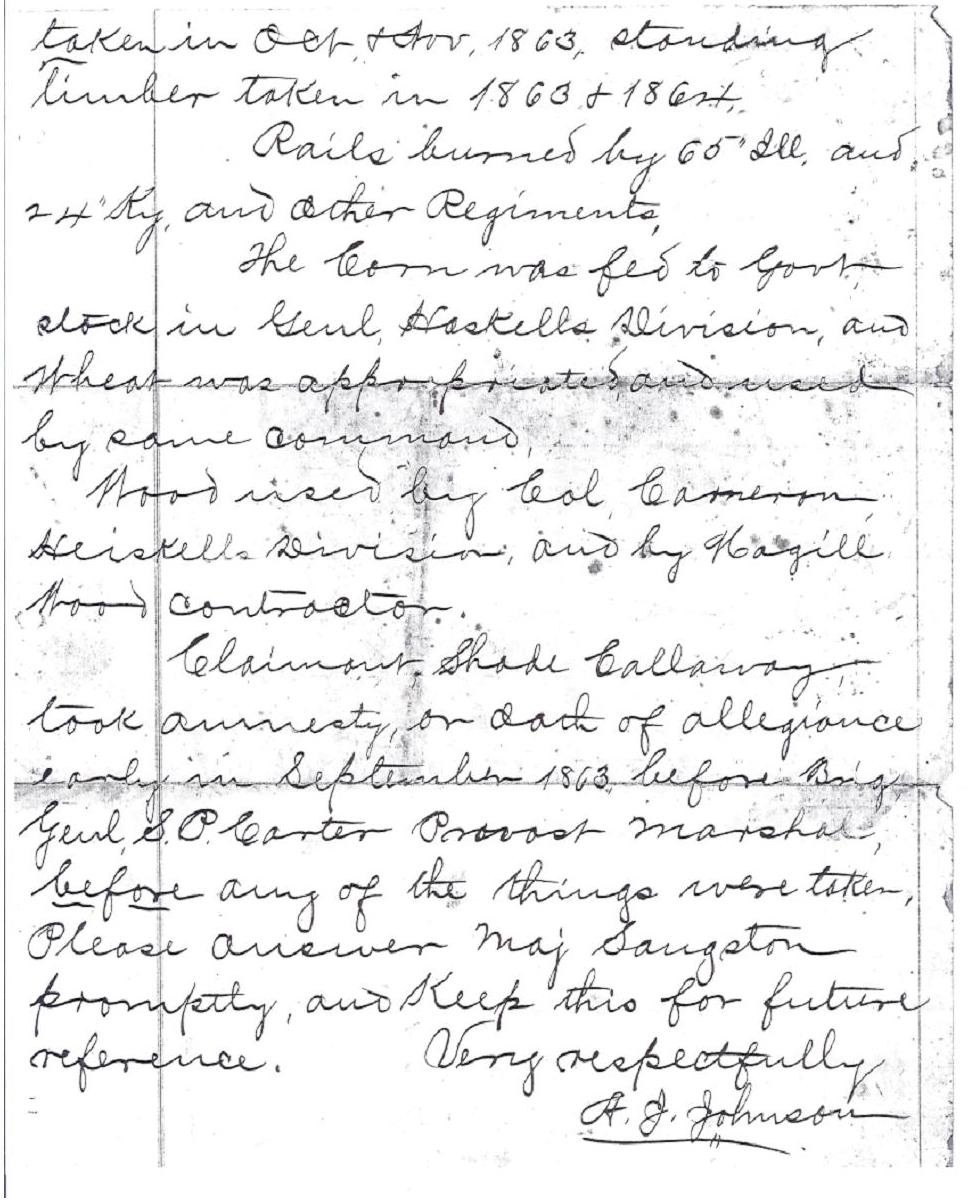 taken in Oct, & Nov, 1863, standing
timber taken in 1863 & 1864,
Rails burned by 65" Ill, and
24" Ky, and other Regiments,
The Corn was fed to Govt
stock in Genl, Haskells Division, and
Wheat was appropriated, and used
by same command,
Wood used by Col, Cameron,
Heiskells Division, and by Magill
Wood contractor.
Claimant, Shade Callaway,
took amnesty, or oath of allegiance
early in September 1863, before Brig,
Genl, S. P. Carter Provost Marshal,
before any of the things were taken,
Please answer Maj Sangston
promptly, and Keep this for future
reference. Very respectfully
A. J. Johnson